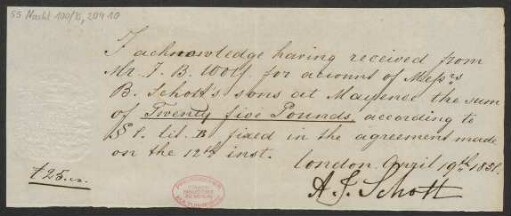 55 Nachl 100/B,
I acknowledge having received from
Mr. J. B. Wolf for account of Messrs
B. Schott's sons at Mayence the sum
of Twenty five Pounds, according to
§ 1. lit. B fixed in the agreement made
on the 12th inst.
London April 19th 1831.
£25.
A. J. Schott